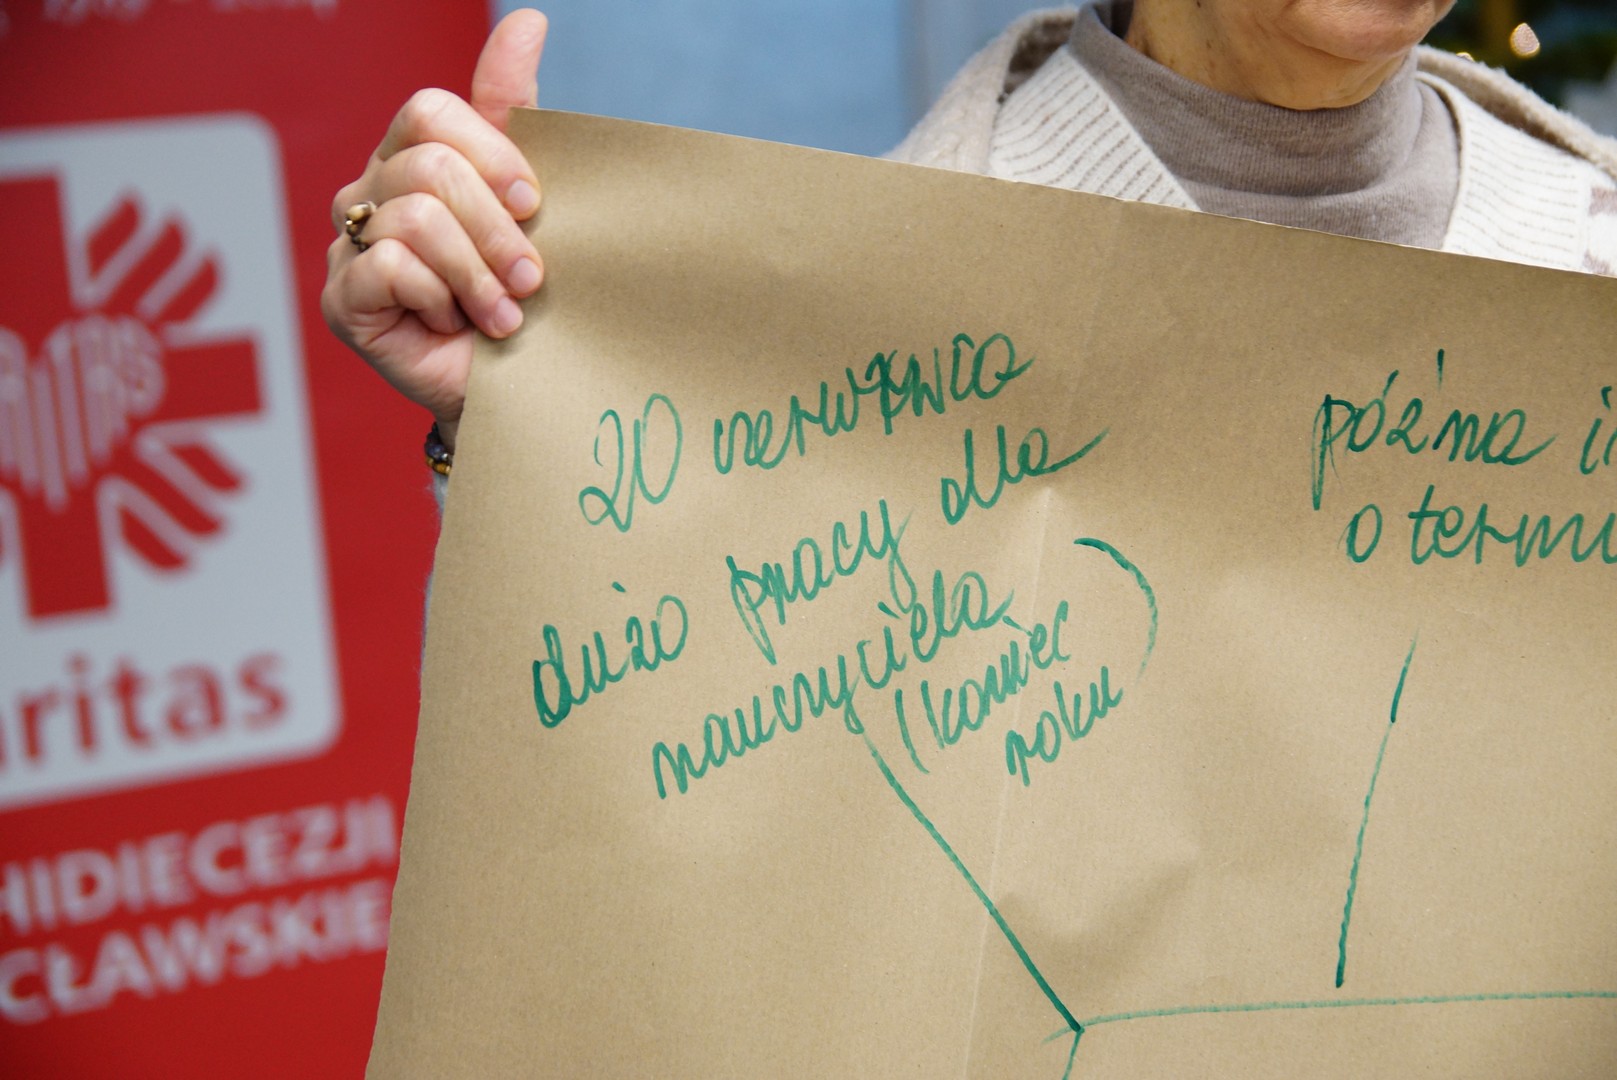 CARITAS
aritas
HIDIECEZJI
CŁAWSKIE
20 czerwca
dużo pracy dla
nauczyciela
(koniec
roku)
późna i
o termi